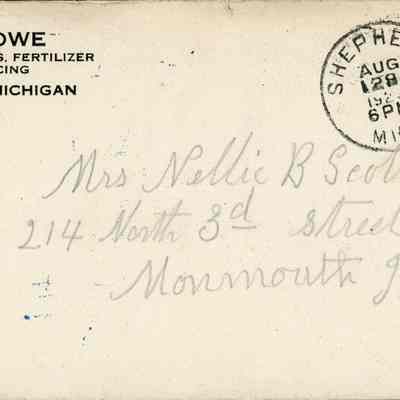 OWE
S, FERTILIZER
CING
MICHIGAN
SHEPHE
AUG
128
192
6 PM
MI
Mrs Nellie B Scot
214 North 3d Street
Monmouth